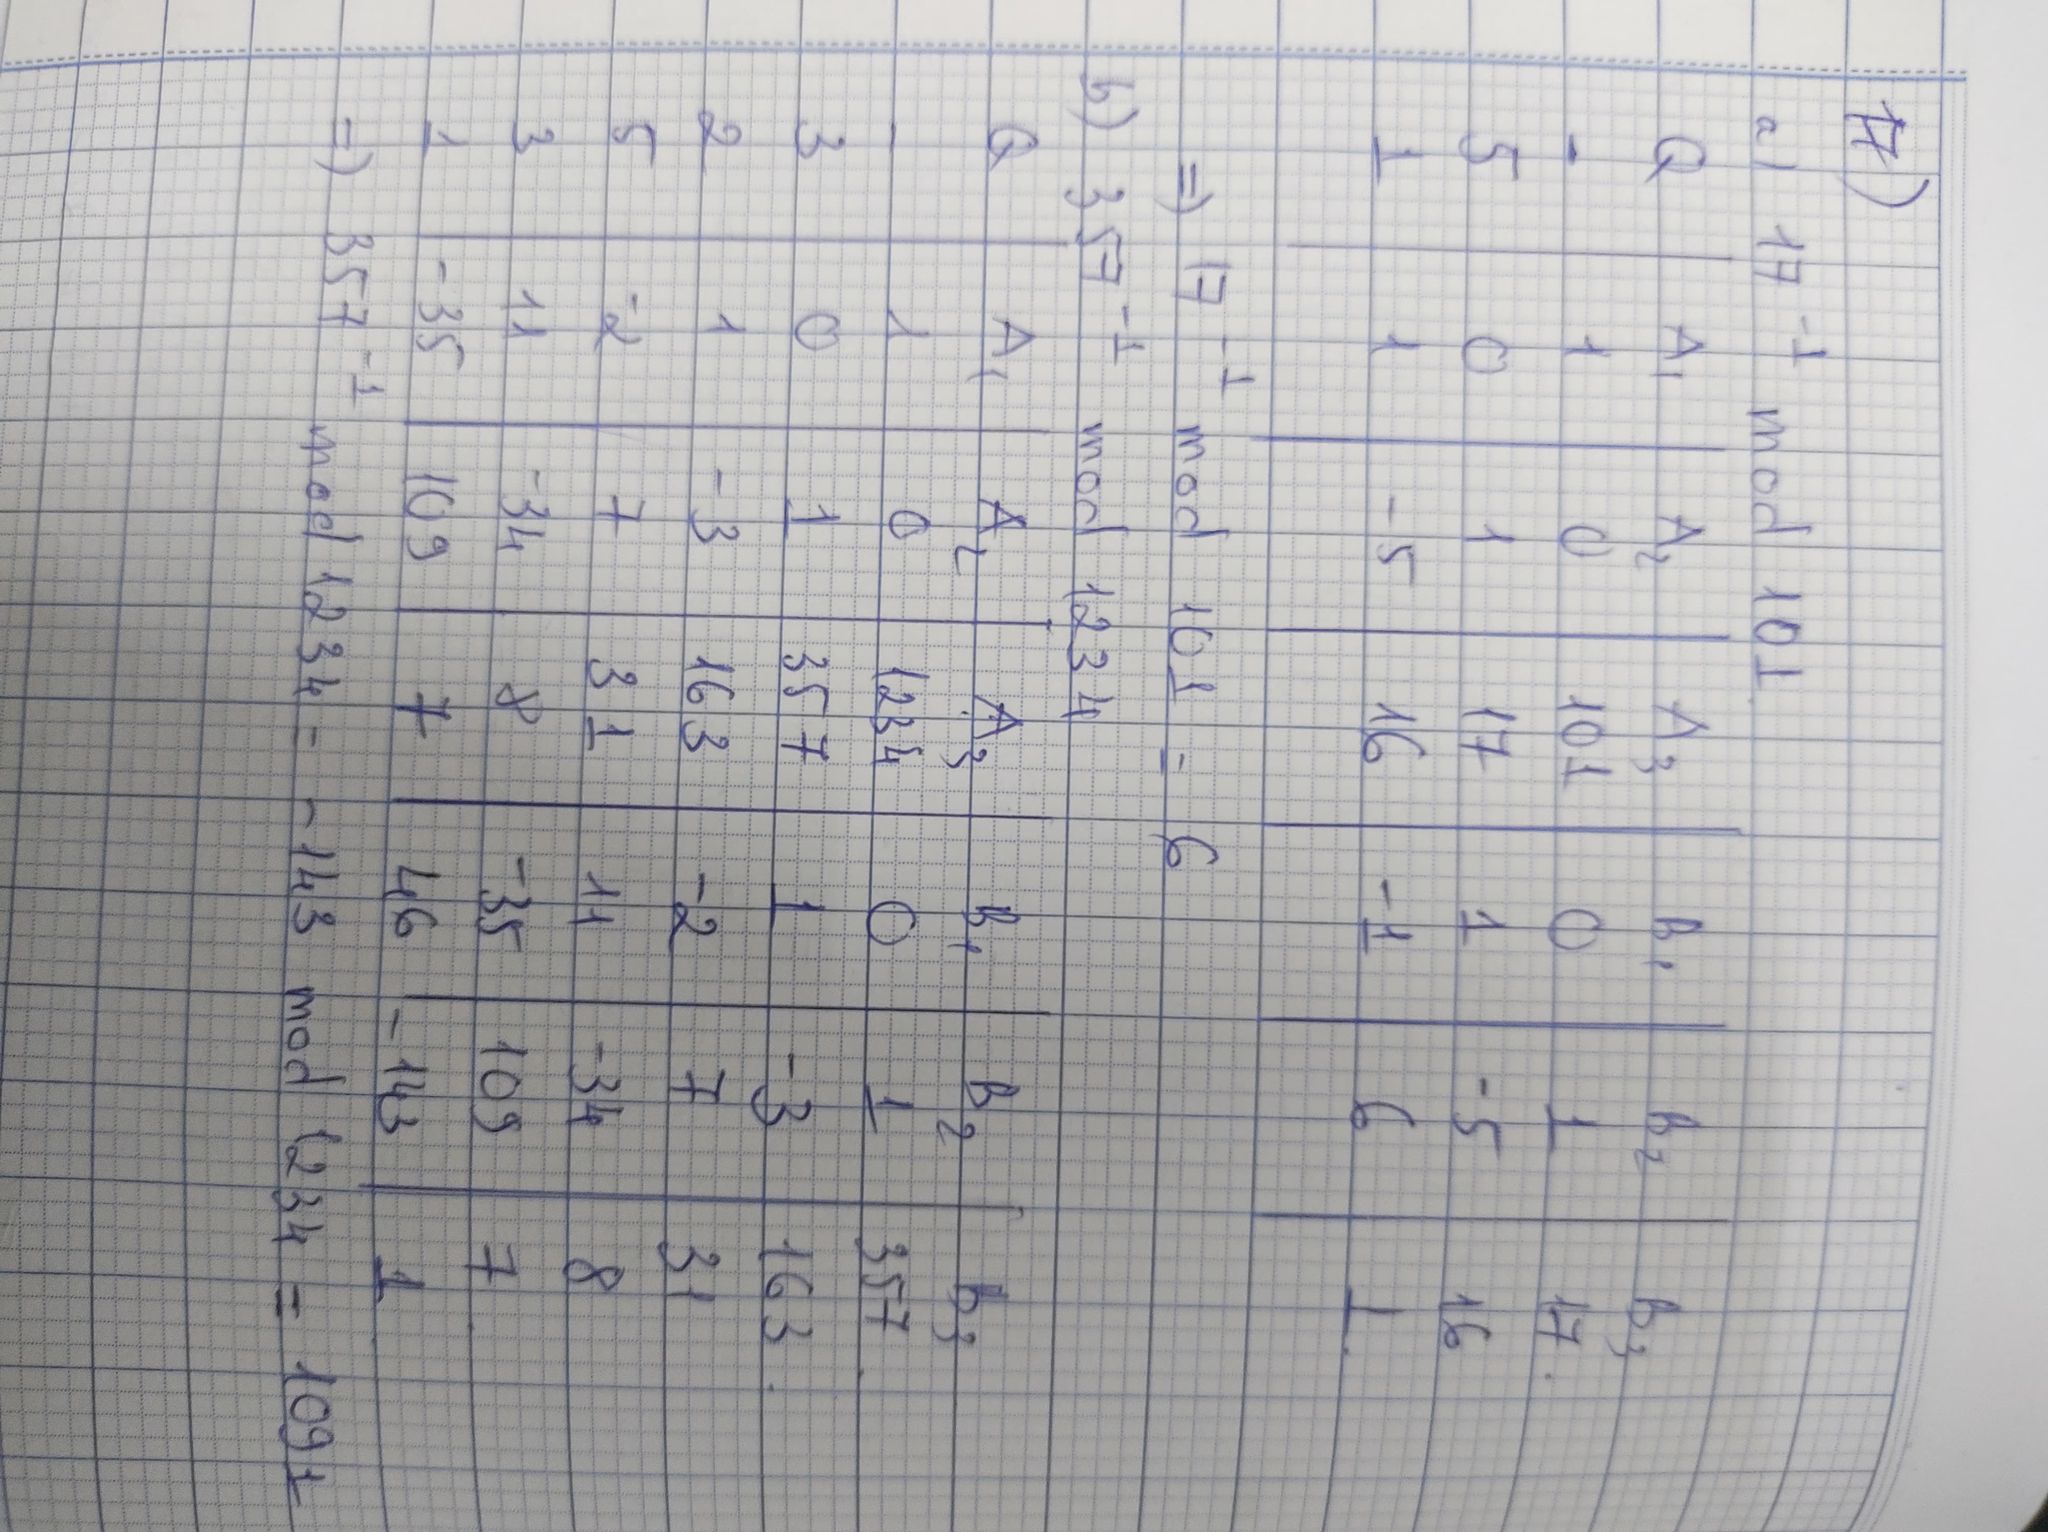 17)
a) 17 ⁻¹ mod 101
Q A₁ A₂ A3 B₁ B₂ B3
- 1 0 101 0 1 17
5 0 1 17 1 -5 16
1 1 -5 16 -1 6 1
=) 17 ⁻¹ mod 101 = 6
b) 357 ⁻¹ mod 1234
Q A₁ A₂ A3 B₁ B₂ B3
- 1 0 1234 0 1 357
3 0 1 357 1 -3 163
2 1 -3 163 -2 7 31
5 -2 7 31 11 -34 8
3 11 -34 8 -35 109 7
1 -35 109 7 46 -143 1
=) 357 ⁻¹ mod 1234 = -143 mod 1234 = 1091